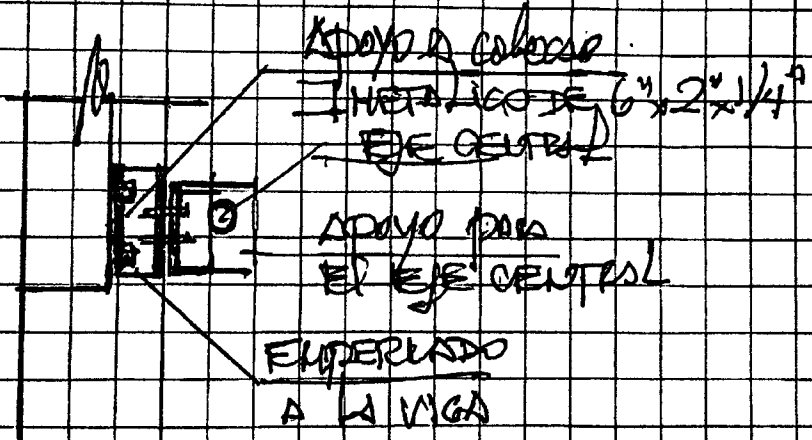 APOYO A COLOCAR
I METALICO DE 6"x2"x1/4"
EJE CENTRAL
2
APOYO PARA
EL EJE CENTRAL
EMPERNADO
A LA VIGA